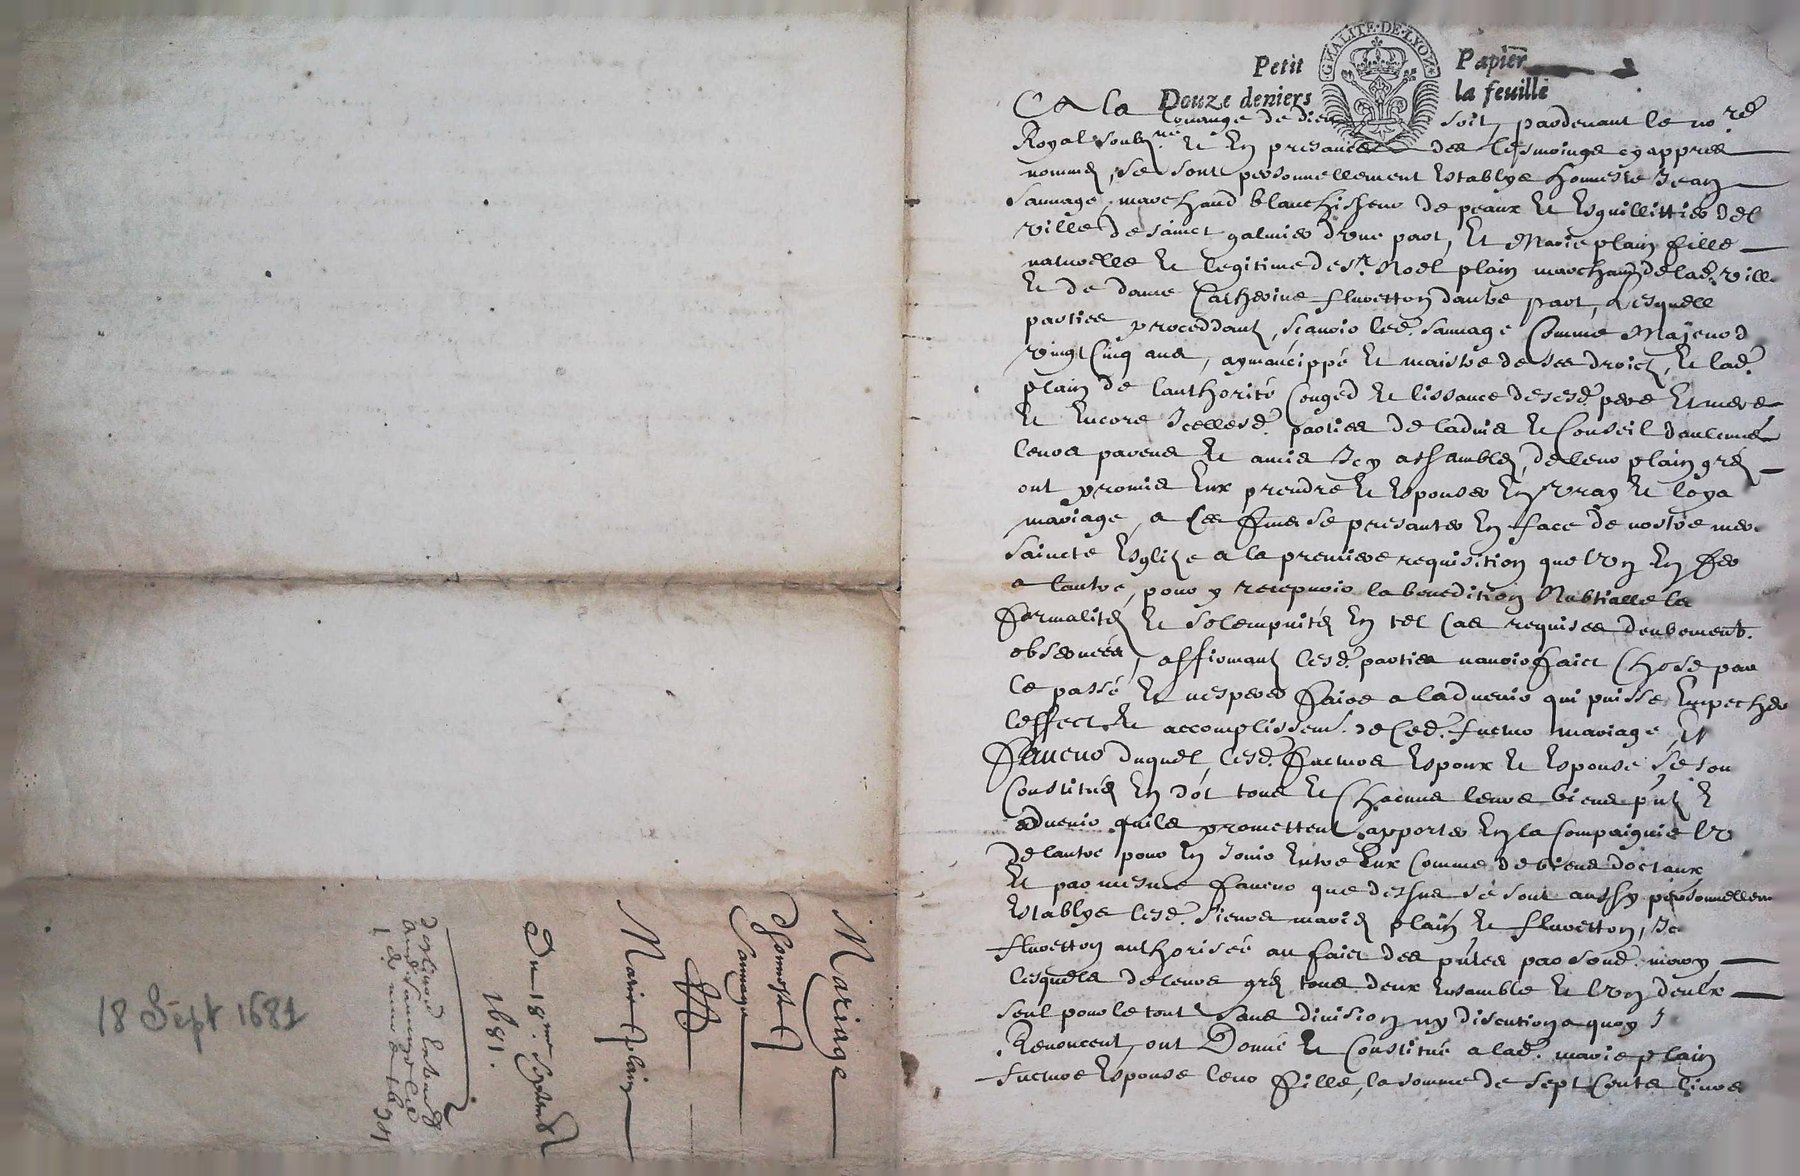 Mariage
d'honneste
Sauvage
Et
Marie plain
Du 18me Septembre
1681.
18 Sept 1681
GNALITE·DE·LYON
Petit Papier
Douze deniers la feuille
A la louange de dieu soit, pardevant le no.re
Royal soub.né et en presance des tesmoings cy appres
nommés, se sont personnellement establys honneste Jean
Sauvage, marchand blanchisseur de peaux et esguillittier del
ville de sainct galmier d'une part, et Marie plain fille
naturelle et legitime de sr. Noel plain marchand de lad. ville
et de dame Catherine fluretton d'autre part, Lesquell
parties proceddant, sçavoir led. sauvage comme Majeur d
vingt Cinq ans, aymancippé et maistre de ses droictz, et lad.
plain de l'authorité Conged et lissance desesd. pere Et mere
et encore Icellesd. parties de ladvis et Conseil daulcuns
leurs parens et amis Icy assamblés, de leur plain gré
ont promis eux prendre et espouser en vray et loya
mariage, a ces fins se presanter en face de nostre mer
saincte esglize a la premiere requisition que l'un en fer
a l'autre, pour y recepvoir la benedition Nubtialle les
formalités et solempnités en tel cas requises deubement
observées, affirmant lesd. parties n'avoir faict chose par
le passé et n'esperer faire a ladvenir qui puisse empecher
l'effect et accomplissemt. de ced. futur mariage, Et
faveur duquel, lesd. futurs espoux et espouse se son
Constitués en dot tous et chacuns leurs biens pñtz e
advenir quils promettent apporter en la Compaignie lu
de lautre pour en Jouir entre Eux Comme de biens doctaux
Et par mesme faveur que dessus se sont aussy personnellem
establys lesd. sieurs mariés plain et fluretton, Ic
fluretton authorisée au faict des pñtes par sond. mary
lesquels de leurs gré tous deux ensamble et l'un d'eulx
seul pour le tout sans division ny discution a quoy I
Renoncent, ont Donné et Constitué a lad. marie plain
future espouse leur fille, la somme de sept Cents livres